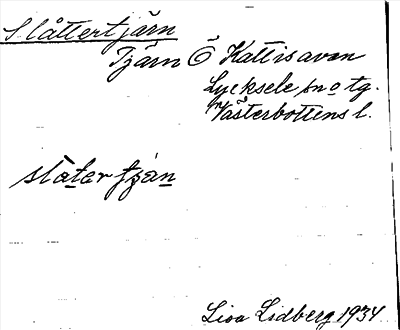 Slåttertjärn
Tjärn Ö Kattisavan
Lycksele sn o tg.
Västerbottens l.
slåter tjän
Lisa Lidberg 1934